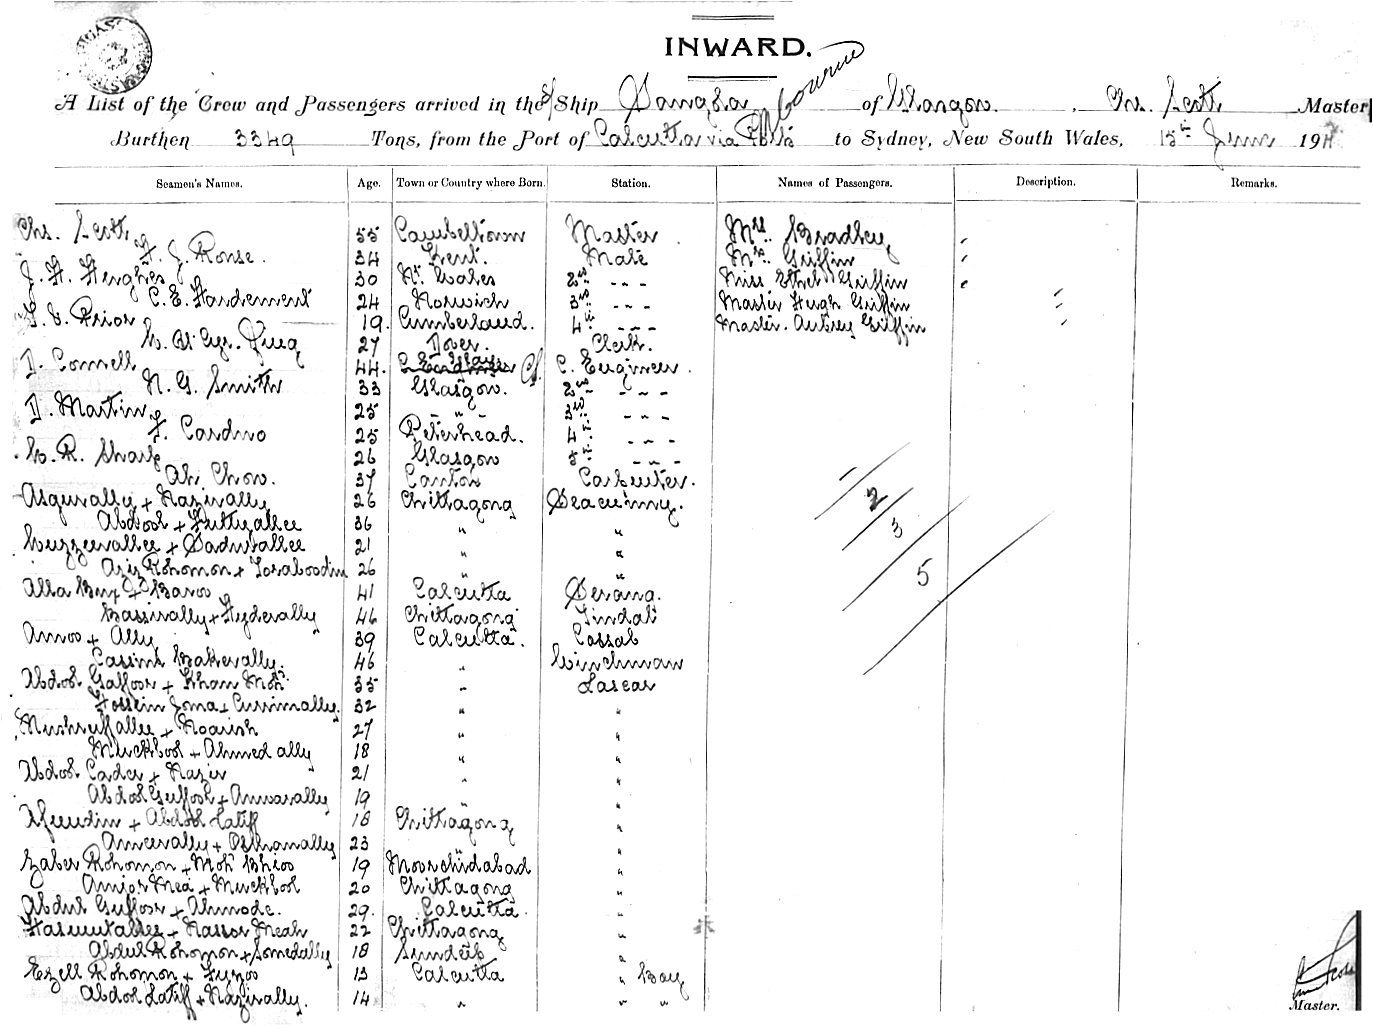 INWARD.
A List of the Crew and Passengers arrived in the S/Ship Sangola of Glasgow, Chs. Scott Master
Burthen 3349 Tons, from the Port of Calcutta via Melbourne to Sydney, New South Wales, 15th June 191
Seamen's Names. Age. Town or Country where Born. Station. Names of Passengers. Description. Remarks.
Chs. Scott 55 Cambeltown Master Mrs. Bradbery
F. J. Rouse. 34 Kent. Mate Mrs. Griffin
J. H. Hughes 30 Nth Wales 2nd - - - Miss Ethel Griffin
C. E. Hardement 24 Norwich 3rd - - - Master Hugh Griffin
Prior 19. Cumberland. 4th - - - Master. Aubrey Griffin
27 Dover. Clerk.
D. Connell 44. C. Engineer.
N. G. Smith 33 Glasgow. 2nd - - -
D. Martin 25 - " - 3rd - - -
F. Cardno 25 Peterhead. 4th - - -
W. R. Sharp 26 Glasgow 5th - - -
Ah Chow. 37 Canton Carpenter.
Asgurally + Nazirally 26 Chittagong Seacunny. 2
Abdool + Futtyallee 36 " " 3
Wuzzeerallee + Sadutallee 21 " "
Aziz Rohomon + Toraboodin 26 " " 5
Alla Bux + Baroo 41 Calcutta Serang.
Bassirally + Hyderally 46 Chittagong Tindal
Amoo + Ally 39 Calcutta. Cassab
Cassim Bakerally. 46 " Winchman
Abdool Gaffoor + Khan Moh 35 " Lascar
Hossein Joma + Currimally. 32 " "
Mushruffallee + Noarish 27 " "
Muckbool + Ahmed ally 18 " "
Abdool Cader + Nazir 21 " "
Abdool Guffoor + Anwarally 19 " "
+ Abdool Latiff 18 Chittagong "
Ameerally + Osmanally 23 "
Zaber Rohomon + Moh Bhioo 19 Moorchidabad "
Amior Mea + Muckbool 20 Chittagong "
Abdul Guffoor + Ahmode. 29. Calcutta. "
Hasmutallee + Nassor Meah 22 Chittagong "
Abdul Rohomon + Somedally 18 Sundeeb "
Ezell Rohomon + Fuzoo 13 Calcutta " Boy
Abdool Latiff + Nazirally. 14 " " "
Master.